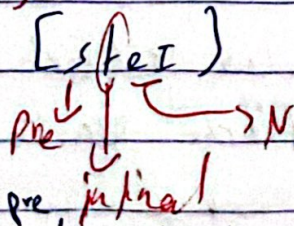 [steɪ]
pre N
pre initial